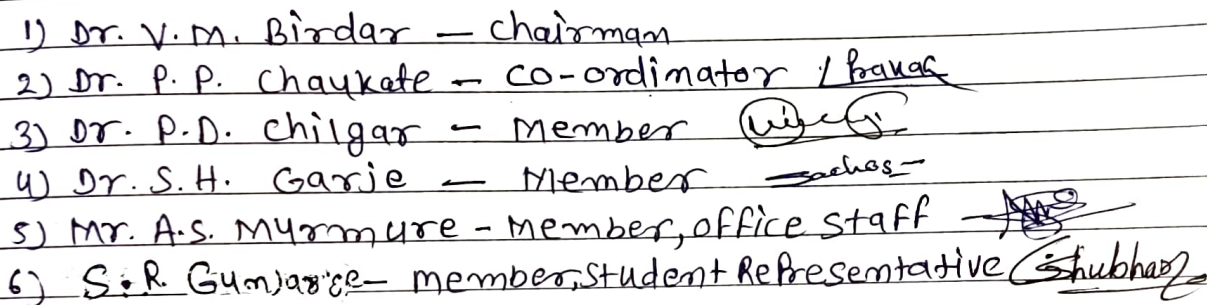 1) Dr. V.M. Birdar – Chairman
2) Dr. P.P. Chaukate – CO-ordinator
3) Dr. P.D. Chilgar – Member
4) Dr. S.H. Garje – Member
5) Mr. A.S. Murmure – Member, office staff
6) S.R. – member, Student Representative